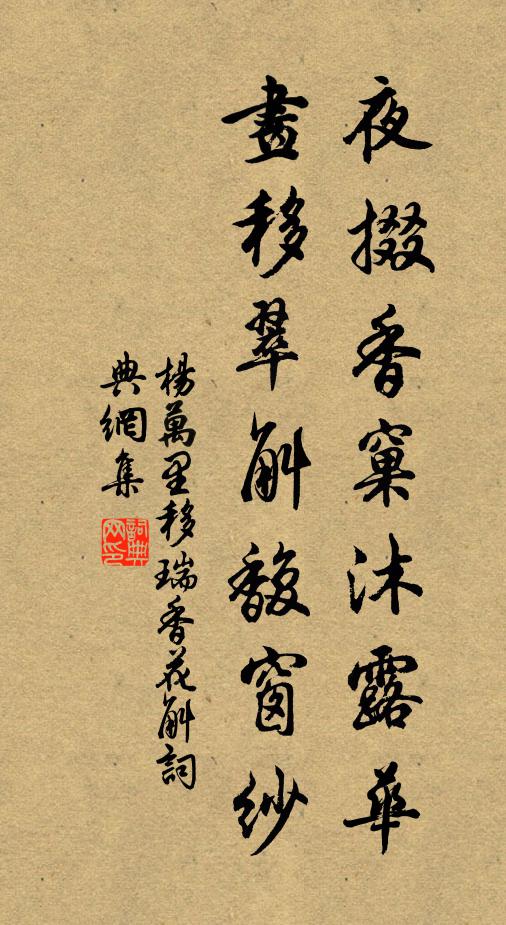 夜掇香窠沐露華
晝移翠斛馥窗紗
楊萬里移瑞香花斛詞
典網集
詞典网印